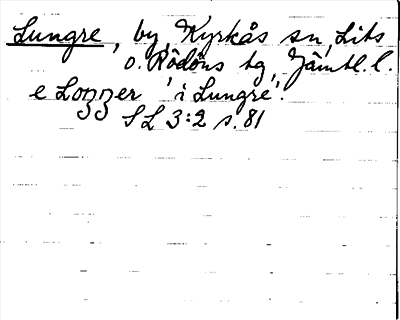 Lungre, by, Kyrkås sn, Lits
o. Rödöns tg, Jämtl. l.
e Loŋŋer 'i Lungre'.
SL 3:2 s. 81